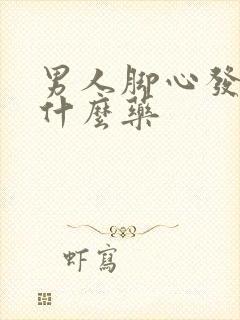 男人脚心發
什麼藥
虾寫